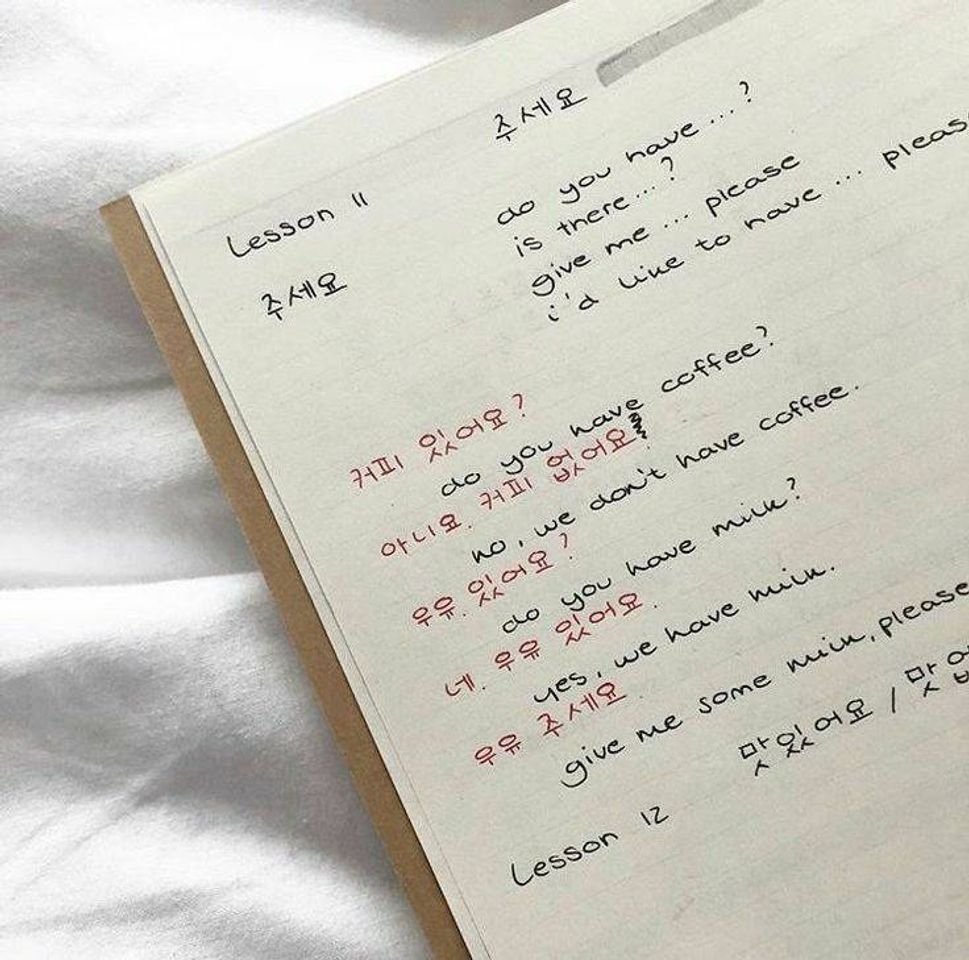 주세요
Lesson 11
do you have...?
is there...?
give me ... please
주세요
i'd like to have ...
커피 있어요?
do you have coffee?
아니요. 커피 없어요
no, we don't have coffee.
우유. 있어요?
do you have milk?
네. 우유 있어요.
yes, we have milk.
우유 주세요.
give me some milk, please
Lesson 12
맛있어요 / 맛